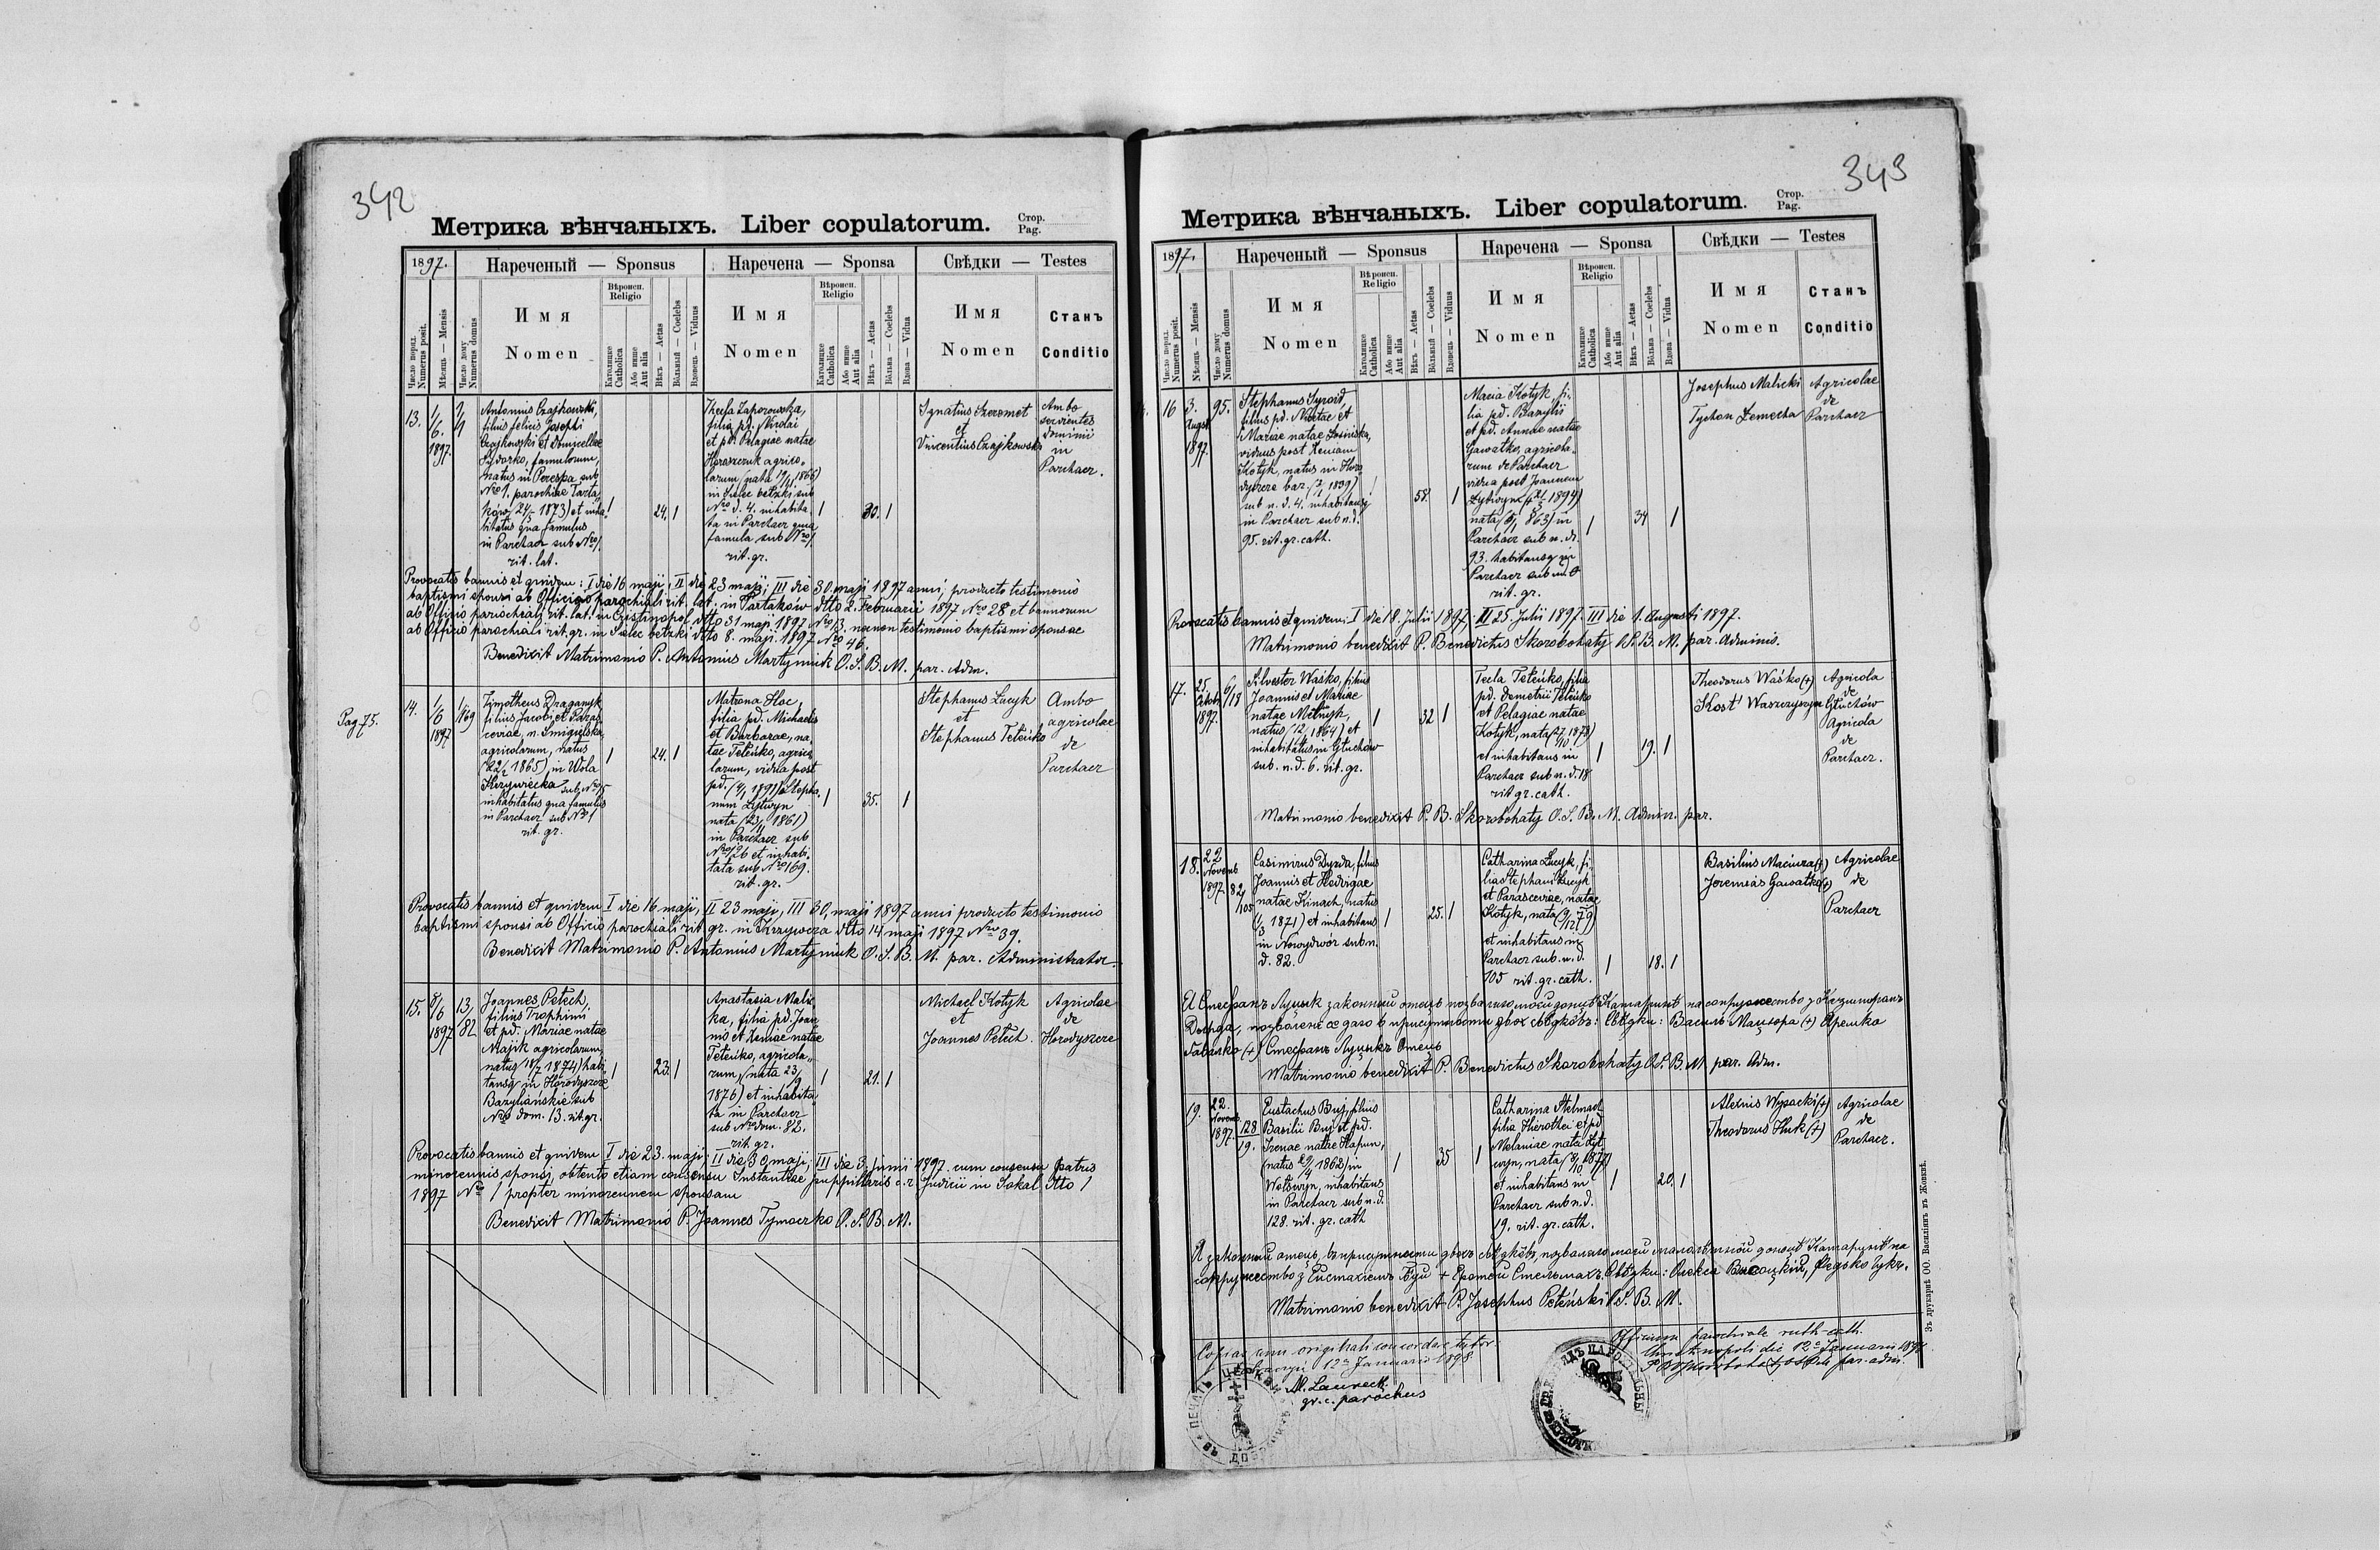 342
Метрика вѣнчаныхъ. Liber copulatorum.
Стор.
Pag.
1897.
Нареченый — Sponsus
Наречена — Sponsa
Свѣдки — Testes
Число поряд.
Numerus posit.
Мѣсяць — Mensis
Число дому
Numerus domus
Имя
Nomen
Вѣроисп.
Religio
Католицке
Catholica
Або инше
Aut alia
Вѣкъ — Aetas
Вольный — Coelebs
Вдовець — Viduus
Имя
Nomen
Вѣроисп.
Religio
Католицке
Catholica
Або инше
Aut alia
Вѣкъ — Aetas
Вôльна — Coelebs
Вдова — Vidua
Имя
Nomen
Станъ
Conditio
13.
1/6.
1897.
1/1
Antonius Czajkowski,
filius felius Josephi
Czajkowski et Domicellae
Sydorko, famulorum,
natus in Perespa sub
Nro 1. parochiae Tarta
ków 1873) et inha
bitatus qua famulus
in Parchacz sub Nro 1
rit. lat.
1
24.
1
Thecla Zaporowska,
filia pd. Nicolai
et pd. Pelagiae natae
Haraszczuk agrico-
larum (nata 1866)
in Sielec bełzki sub
Nro d. 4. inhabita
ta in Parchacz qua
famula sub Nro 1.
rit. gr.
1
30.
1
Ignatius Szeremet
et
Vincentius Czajkowski
Ambo
servientes
dominii
in
Parchacz.
Provocatis bannis et quidem: I die 16 maji, II die 23 maji, III die 30. maji 1897 anni, producto testimonio
baptismi sponsi ab Officio parochiali rit. lat. in Tartaków dtto 2. Februarii 1897 Nro 28 et bannorum
ab Officio parochiali rit. lat. in Cristinopol dtto 31 maji 1897 Nro 13. necnon testimonio baptismi sponsae
ab Officio parochiali rit. gr. in Sielec bełzki dtto 8. maji 1897 Nro 46.
Benedixit Matrimonio P. Antonius Martyniuk O.S.B.M. par. Adm.
Pag 75.
14.
1/6
1897
1/169
Timotheus Draganyk
filius Jacobi et Paras
cevae, n. Smigielska,
agricolarum, natus
(22/2 1865) in Wola
Krzywiecka sub Nro 15
inhabitatus qua famulus
in Parchacz sub Nro 1
rit. gr.
1
24.
1
Matrona Hoc,
filia pd. Michaelis
et Barbarae, na
tae Teteńko, agrico
larum, vidua post
pd. 1891) Stepha
num Lytwyn
nata 1861)
in Parchacz sub
Nro 26 et inhabi
tata sub Nro 169.
rit. gr.
1
35.
1
Stephanus Lucyk
et
Stephanus Teteńko
Ambo
agricolae
de
Parchacz
Provocatis bannis et quidem I die 16 maji, II 23 maji, III 30, maji 1897 anni producto testimonio
baptismi sponsi ab Officio parochiali rit. gr. in Krzywcza dtto 14 maji 1897 Nro 39.
Benedixit Matrimonio P. Antonius Martyniuk O.S.B.M. par. Administrator.
15.
8/6
1897
13/82
Joannes Petech,
filius Trophimi
et pd. Mariae natae
Majik agricolarum,
natus 1874) habi
tansq in Horodyszcze
Bazyliańskie sub
Nro dom. 13. rit. gr.
1
23.
1
Anastasia Malic
ka, filia pd. Joan
nis et Xeniae natae
Teteńko, agricola-
rum, (nata 23/9
1876) et inhabita
ta in Parchacz
sub Nro dom. 82.
rit. gr.
1
21.
1
Michael Kotyk
et
Joannes Petech.
Agricolae
de
Horodyszcze
Provocatis bannis et quidem I die 23. maji, II die 30 maji, III die 3. junii 1897. cum consensu patris
minorennis sponsi, obtento etiam consensu Instantiae puppillaris c. r. Judicii in Sokal dtto 1
1897 Nro 1 propter minorennem sponsam
Benedixit Matrimonio P. Joannes Tymoczko O.S.B.M.
343
Метрика вѣнчаныхъ. Liber copulatorum.
Стор.
Pag.
1897.
Нареченый — Sponsus
Наречена — Sponsa
Свѣдки — Testes
Число поряд.
Numerus posit.
Мѣсяць — Mensis
Число дому
Numerus domus
Имя
Nomen
Вѣроисп.
Religio
Католицке
Catholica
Або инше
Aut alia
Вѣкъ — Aetas
Вôльный — Coelebs
Вдовець — Viduus
Имя
Nomen
Вѣроисп.
Religio
Католицке
Catholica
Або инше
Aut alia
Вѣкъ — Aetas
Вôльна — Coelebs
Вдова — Vidua
Имя
Nomen
Станъ
Conditio
16
3.
August
1897.
95.
Stephanus Syrord
filius pd. Nicetae et
Mariae natae Łosińska,
viduus post Xeniam
Kotyk, natus in Horo
dyszcze baz. 1839)
sub n. d. 4. inhabitansq
in Parchacz sub n. d.
95. rit. gr. cath.
1
58.
1
Maria Kotyk, fi-
lia pd. Bazylii
et pd. Annae natae
Gawatko, agricola-
rum de Parchacz
vidua post Joannem
Lytwyn 1894)
nata 863) in
Parchacz sub n. d.
93. habitansq in
Parchacz sub n. d
rit. gr.
1
34
1
Josephus Malicki
Tychon Zemecha
Agricolae
de
Parchacz
Provocatis bannis et quidem: I die 18. Julii 1897, II 25. Julii 1897. III die 1. Augusti 1897.
Matrimonio benedixit P. Benedictus Skorobohaty O.S.B.M. par. Adminis.
17.
25.
Octob
1897.
6/18
Silvester Waśko, filius
Joannis et Mariae
natae Melnyk,
natus 1864) et
inhabitatus in Głuchów
sub. n. d. 6. rit. gr.
1
32
1
Tecla Teteńko, filia
pd. Demetrii Teteńko
et Pelagiae natae
Kotyk, nata 1878)
et inhabitans in
Parchacz sub n. d. 18
rit gr. cath.
1
19.
1
Theodorus Waśko (+)
Kost' Wawrzyszyn
Agricola
de
Głuchów
Agricola
de
Parchacz.
Matrimonio benedixit P. B. Skorobohaty O.S.B.M. Admin. par.
18.
22
Novemb
1897.
82/105
Casimirus Dyrda, filius
Joannis et Hedvigae
natae Kinach, natus
(1/3 1871) et inhabitans
in Nowydwór sub n.
d. 82.
1
25.
1
Catharina Lucyk, fi
lia Stephani Lucyk
et Parascevae, natae
Kotyk, nata 79)
et inhabitans in
Parchacz sub. n. d.
105 rit. gr. cath.
1
18.
1
Basilius Maciura (+)
Jeremias Gawatko (+)
Agricolae
de
Parchacz
Я Стефанъ Луцик законный отець позваляю моôй доньцѣ Катаринѣ на сопружество з Казимиромъ
Дырда, позволенє се даю в присутности двох свѣдкôвъ: Свѣдки: Василь Мацюра (+) Яремко
Габалко (+) Стефанъ Луцикъ отець
Matrimonio benedixit P. Benedictus Skorobohaty O.S.B.M par. Adm.
19.
22.
Novemb
1897.
128/19.
Eustachus Buj, filius
Basilii Buj et pd.
Irenae natae Hapun,
(natus 1862) in
Wołswyn, inhabitans
in Parchacz sub n. d.
128. rit. gr. cath
1
35
1
Catharina Stelmach
filia Hierothei et pd
Melaniae nata Lyt
wyn, nata 1877)
et inhabitans in
Parchacz sub n. d.
19. rit. gr. cath.
1
20.
1
Alexius Wysocki (+)
Theodorus Huk (+)
Agricolae
de
Parchacz.
Я законный отець, въ присутности двохъ свѣдкôвъ, позваляю моôй малолѣтнôй доньцѣ Катаринѣ на
сопружество з Євстахіємъ Буй + Єротей Стельмахъ. Свѣдки: Олекса Високій, Федько Гукъ.
Matrimonio benedixit P. Josephus Peteński O.S.B.M.
Copiae cum originali concordare testor
12 Januarii 1898
M. Laurecki
gr. c. parochus
Officium parochiale ruth-cath.
Christinopoli die 12 Januarii 1898.
par. adm.
Зъ друкарнѣ ОО. Василіянъ въ Жовквѣ.